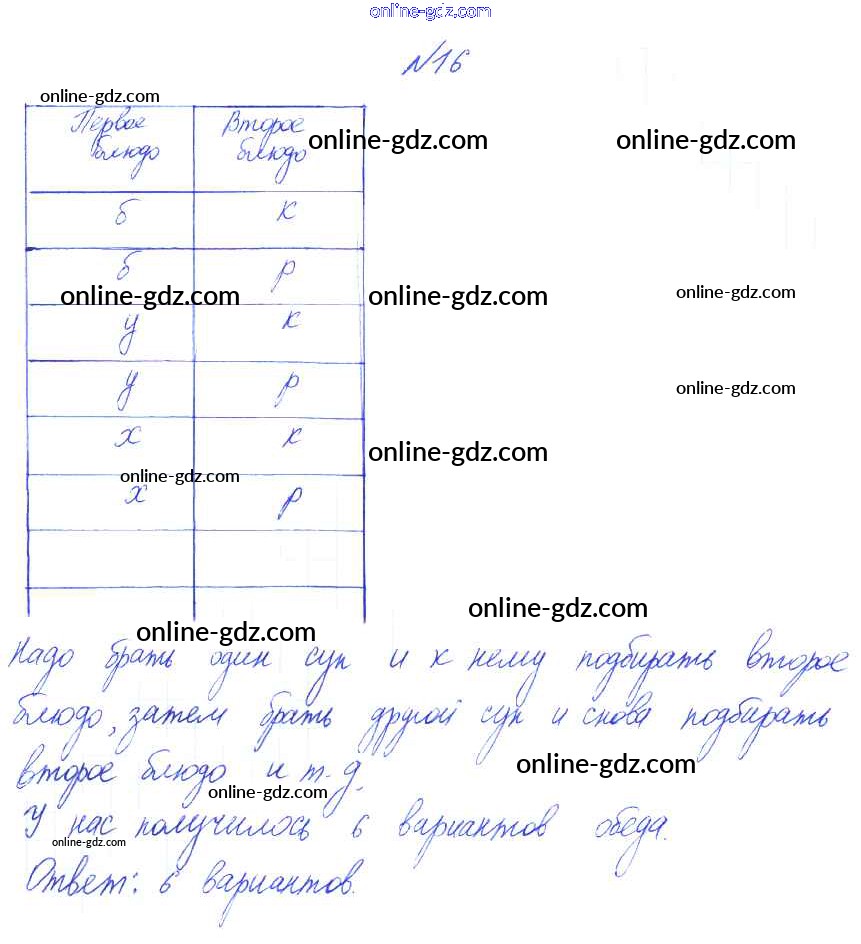 online-gdz.com
№16
online-gdz.com
Первое блюдо Второе блюдо
online-gdz.com online-gdz.com
б к
б р
online-gdz.com online-gdz.com online-gdz.com
у к
у р
online-gdz.com
х к
online-gdz.com
online-gdz.com
х р
online-gdz.com
online-gdz.com
Надо брать один суп и к нему подбирать второе
блюдо, затем брать другой суп и снова подбирать
второе блюдо и т.д.
online-gdz.com
online-gdz.com
У нас получилось 6 вариантов обеда.
online-gdz.com
Ответ: 6 вариантов.